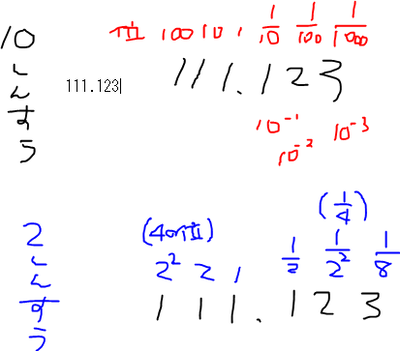 位 100 10 1 1/10 1/100 1/1000
10しんすう
111.123
111.123
10⁻¹ 10⁻² 10⁻³
(1/4)
2しんすう
(4の位)
2² 2 1 1/2 1/2² 1/8
111.123